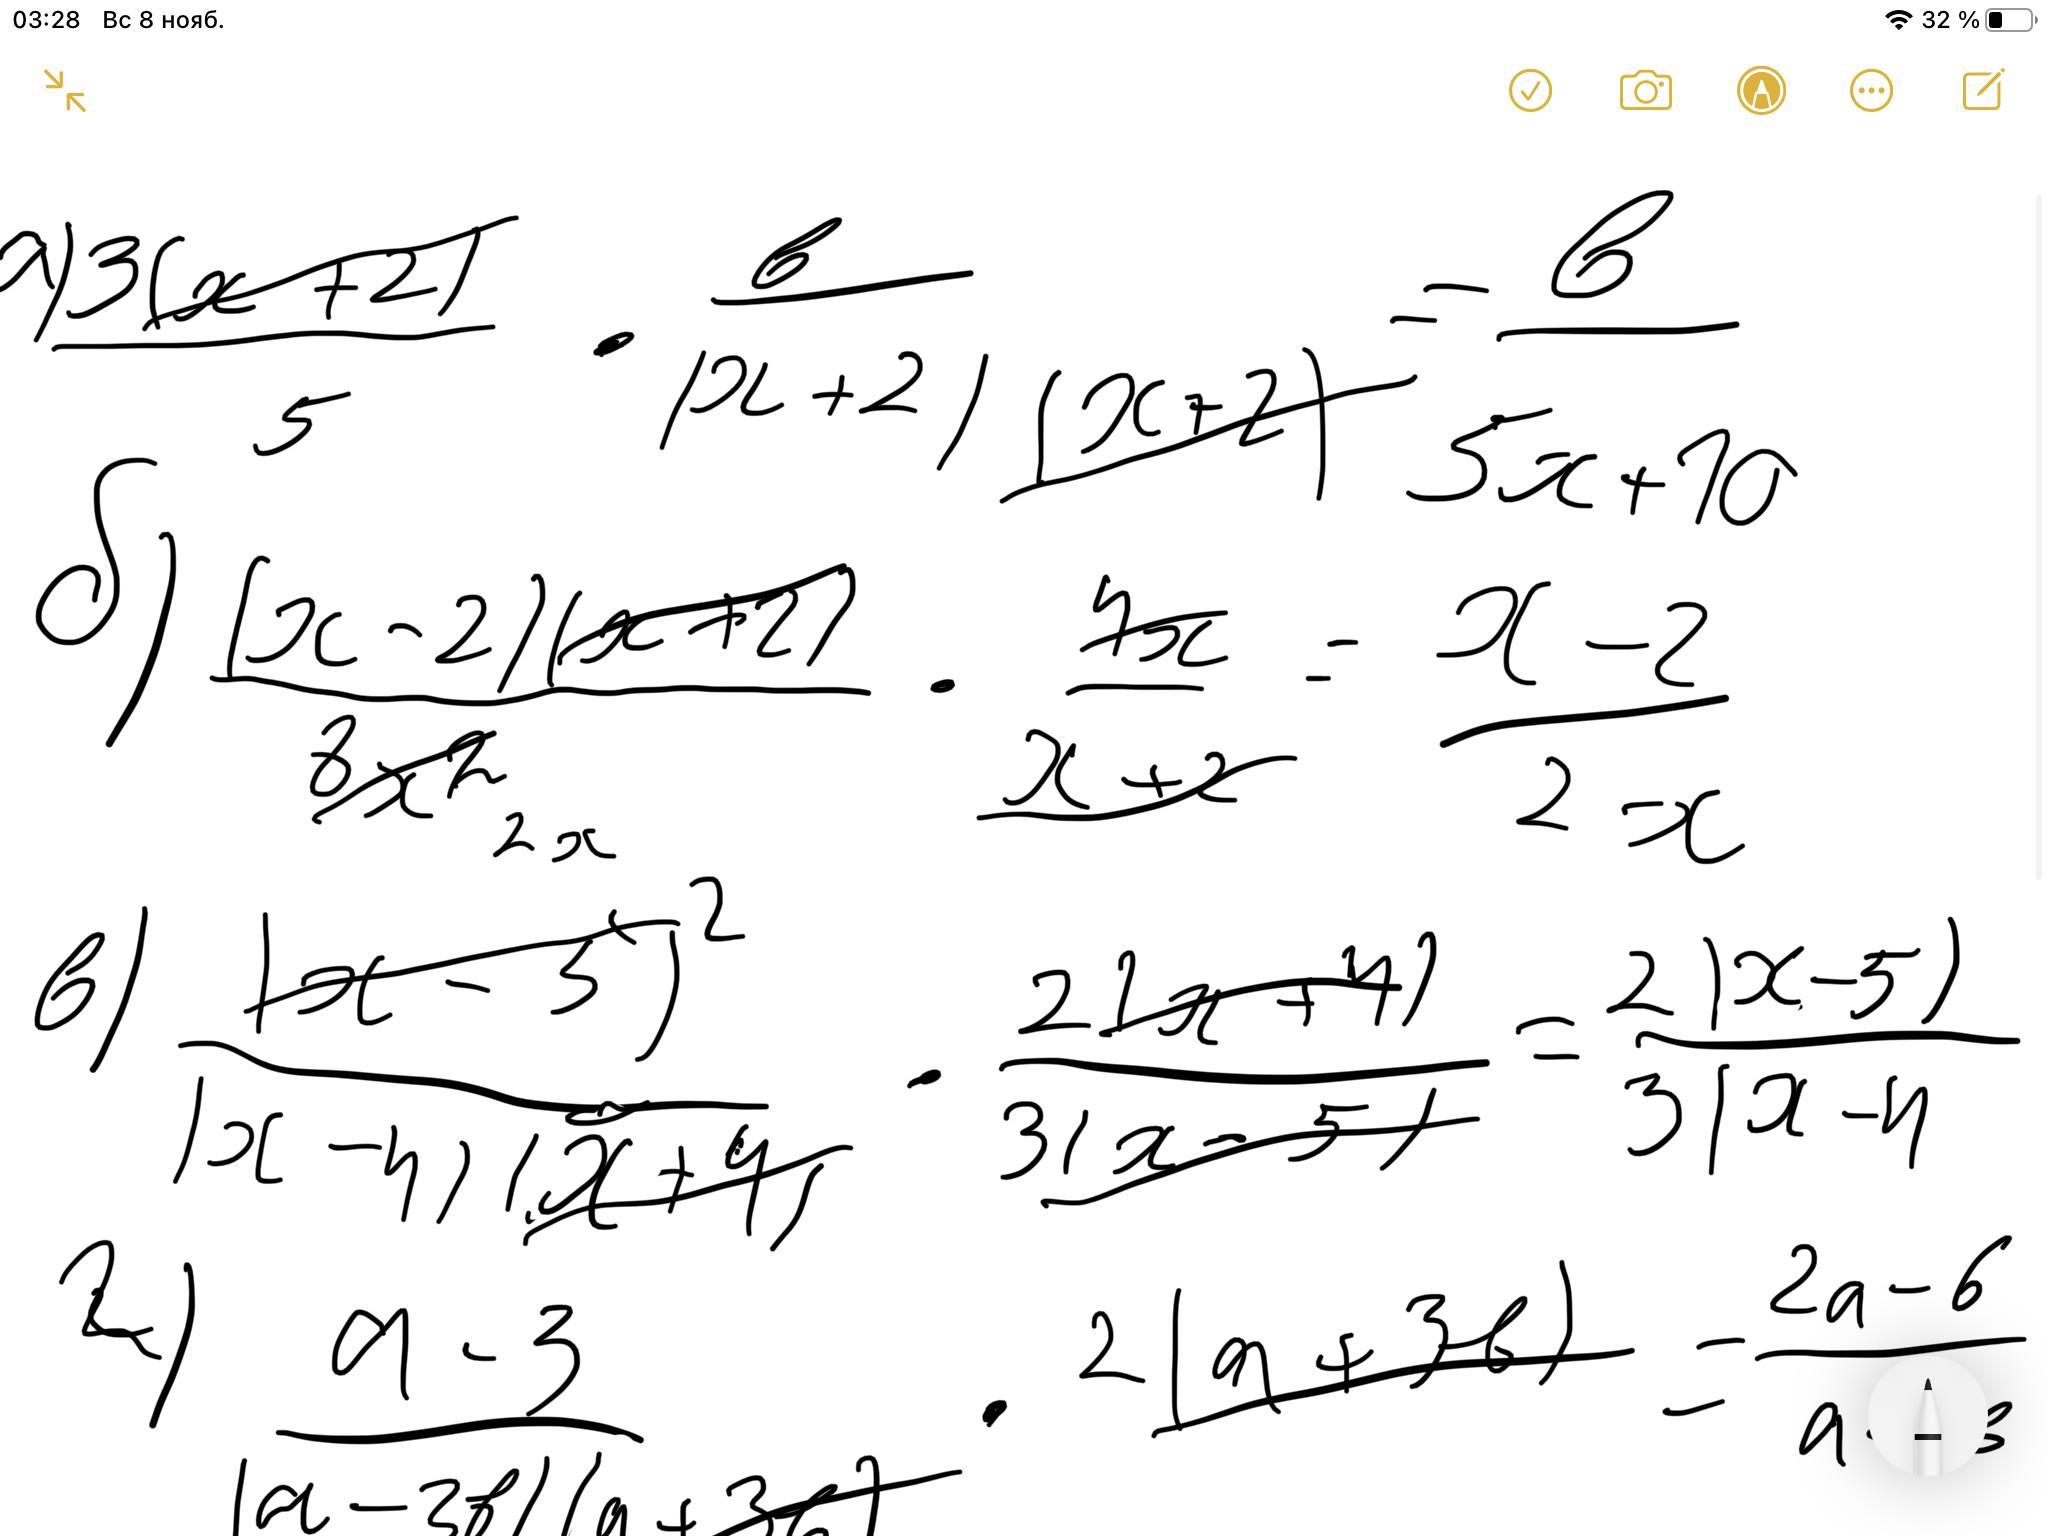 03:28 Вс 8 нояб. 32 %
а) 3(x+2)/5 · в/((x+2)(x+2)) = в/(5x+10)
б) (x-2)(x+2)/(8x²) · 4x/(x+2) = (x-2)/(2x)
2x
в) (x-5)²/((x-4)(x+4)) · 2(x+4)/(3(x-5)) = 2(x-5)/(3(x-4
г) (a-3)/((a-3в)(a+3в)) · 2(a+3в) = (2a-6)/(a-3